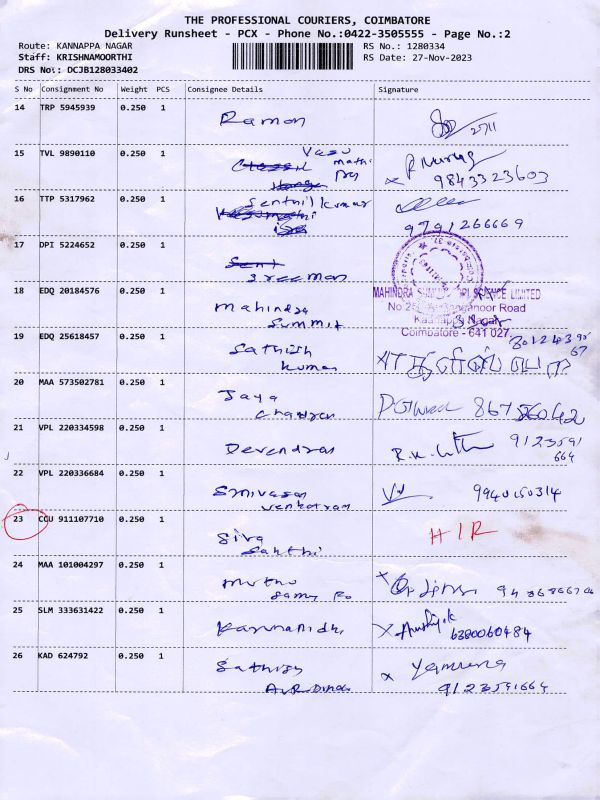 THE PROFESSIONAL COURIERS, COIMBATORE
Delivery Runsheet - PCX - Phone No.:0422-3505555 - Page No.:2
Route: KANNAPPA NAGAR
RS No.: 1280334
Staff: KRISHNAMOORTHI
RS Date: 27-Nov-2023
DRS No: DCJB128033402
S No Consignment No Weight PCS Consignee Details Signature
14 TRP 5945939 0.250 1
Ramon 27/11
15 TVL 9890110 0.250 1
Vasu
mathi
9843323603
16 TTP 5317962 0.250 1
Senthil kumar
9791266669
17 DPI 5224652 0.250 1
Sreeman
18 EDQ 20184576 0.250 1
MAHINDRA LIMITED
Road
Coimbatore - 641 027
Mahindra
Summit
19 EDQ 25618457 0.250 1
Sathish
kumar
20 MAA 573502781 0.250 1
Jaya
chandran
21 VPL 220334598 0.250 1
Devendran
9123591
664
22 VPL 220336684 0.250 1
Srinivasan
Venkatram
9940150314
23 CCU 911107710 0.250 1
Siva
Sakthi
HIR
24 MAA 101004297 0.250 1
Muthu
Samy
25 SLM 333631422 0.250 1
Kannanidhi
6380060484
26 KAD 624792 0.250 1
Sathish
Yamuna
9123591664